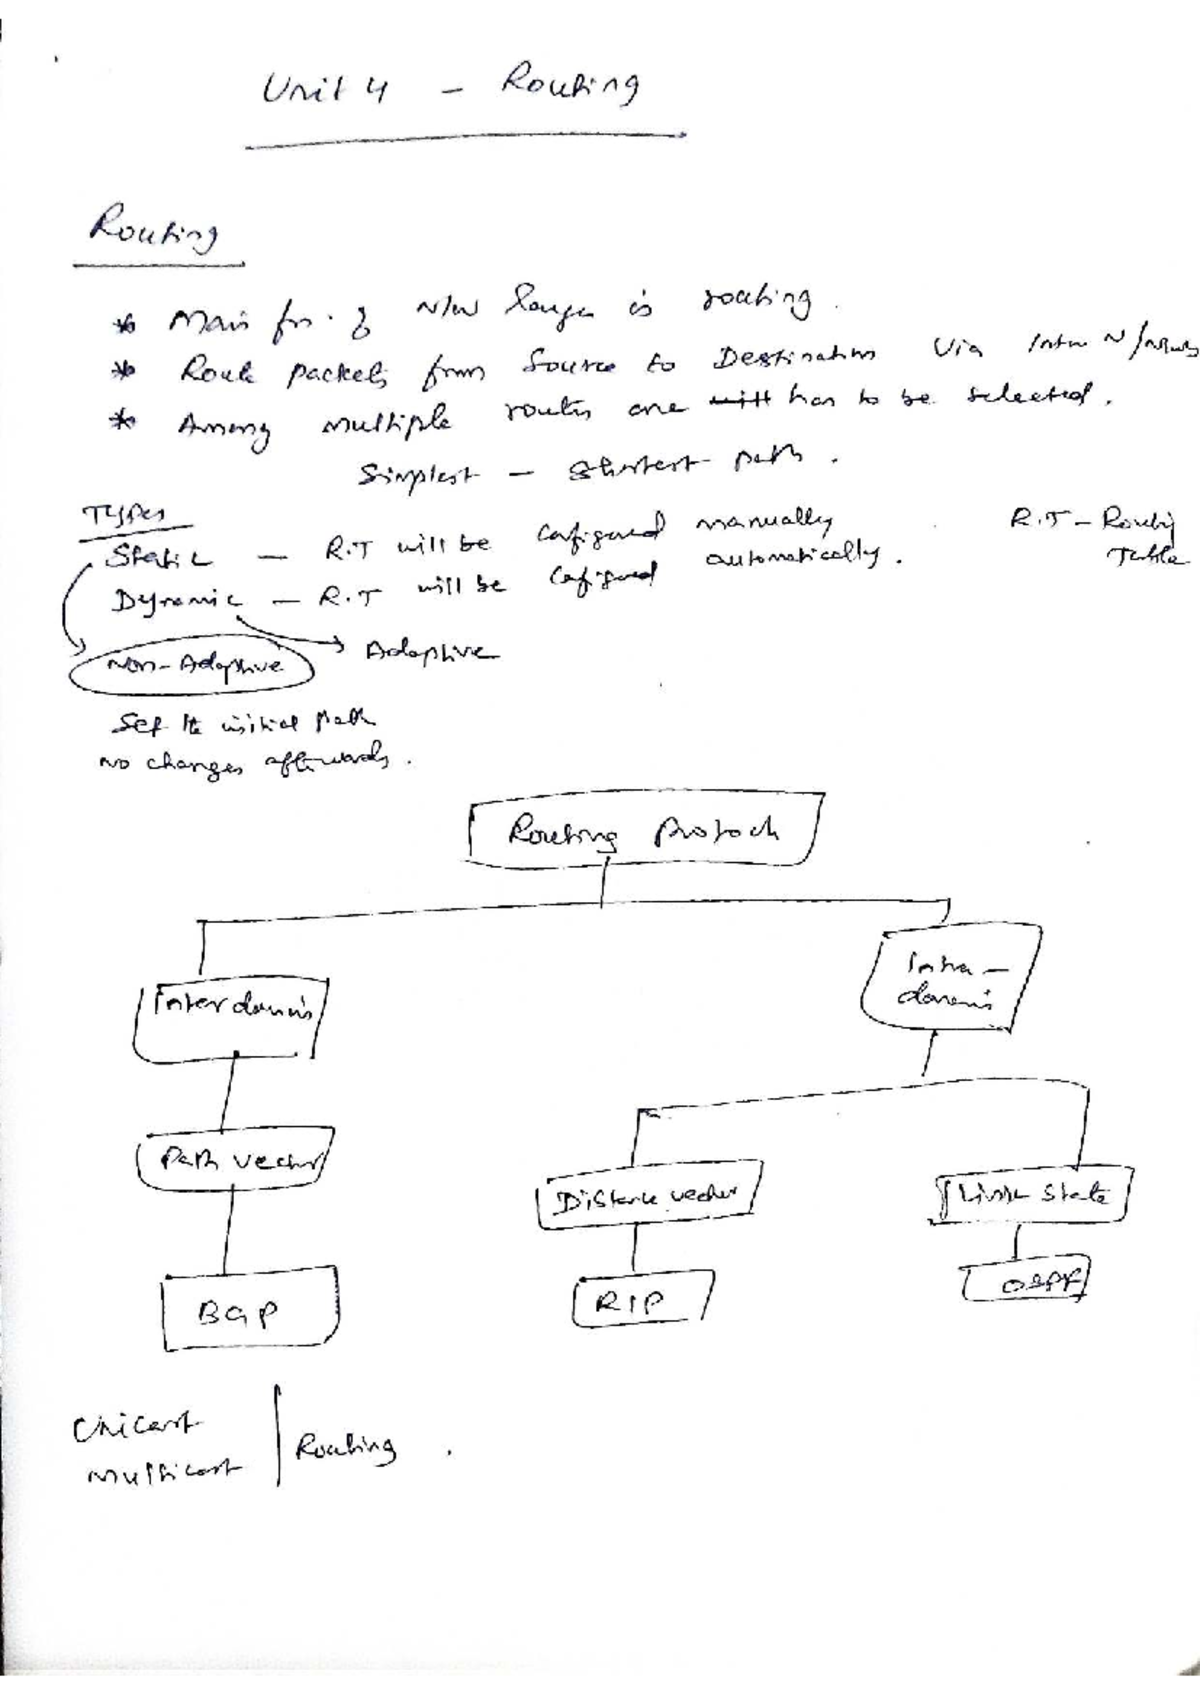 Unit 4 - Routing
Routing
* Main fn. of N/W layer is routing.
* Route packets from Source to Destination Via Inter N/
* Among multiple routes one has to be selected.
Simplest - Shortest path.
Types
Static - R.T will be configured manually
R.T - Routing Table
Dynamic - R.T will be configured automatically.
Non-Adaptive
Adaptive
Set the initial path
no changes afterwards.
Routing protocols
Interdomain
Intra-
domain
Path vector
Distance vector
Link State
BGP
RIP
OSPF
Unicast
Multicast
Routing.